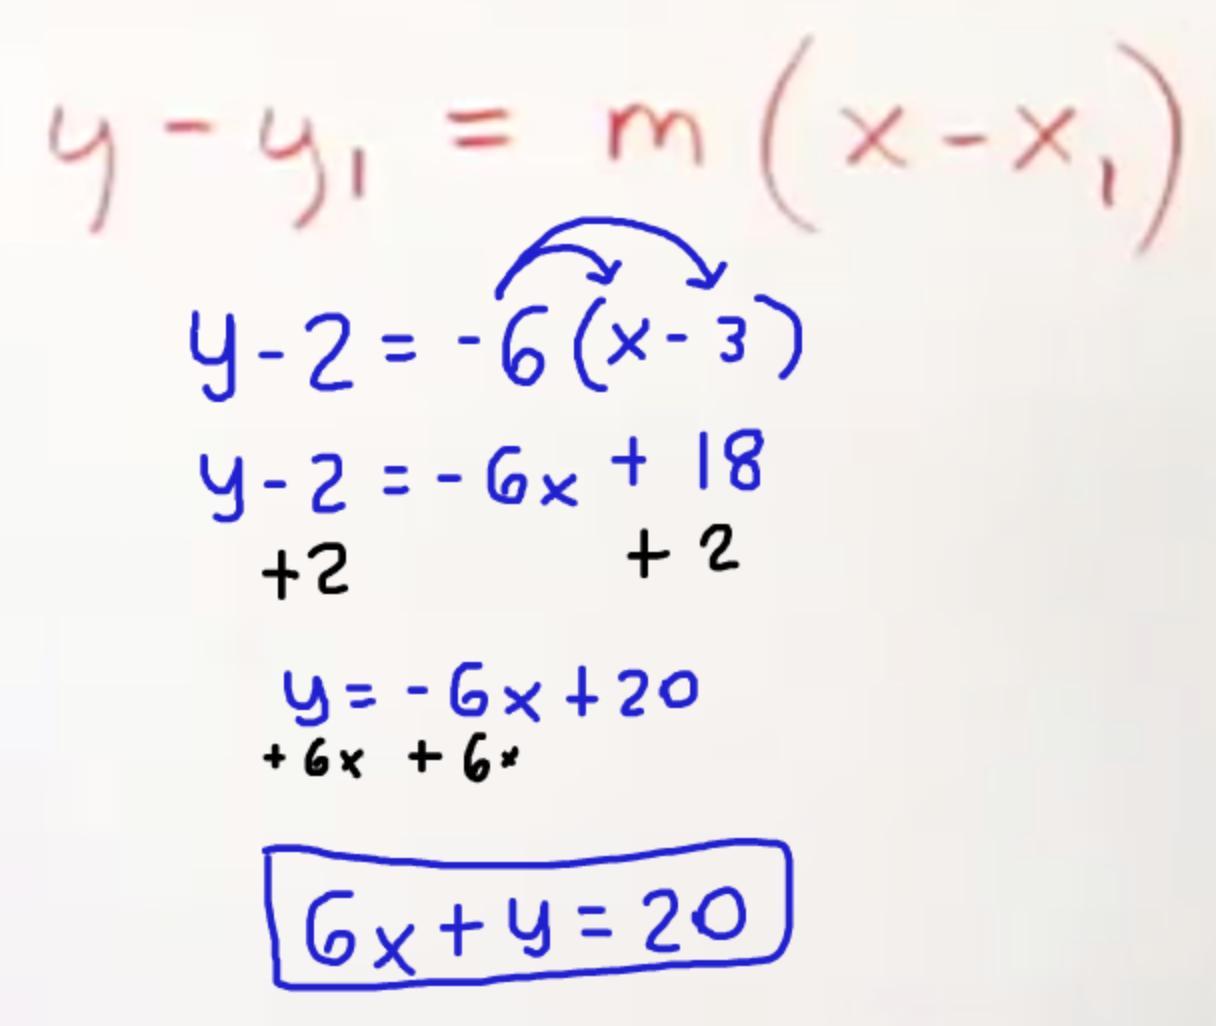 y - y₁ = m(x - x₁)
y - 2 = -6(x - 3)
y - 2 = -6x + 18
+2 + 2
y = -6x + 20
+6x + 6x
6x + y = 20